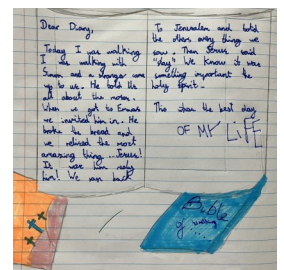 Dear Diary,
Today I was walking
I was walking with
Simon and a stranger came
up to us. He told the
all about the
When we got to Emmaus
we invited him in. He
broke the bread and
we relised the most
amazing thing. Jesus!
It was him realy
him! We ran back
To Jerusalem and told
the others every thing we
saw. Then Jesus said
"day" We knows it was
something important the
holy spirit.
This was the best day
OF MY LIFE
Bible
of